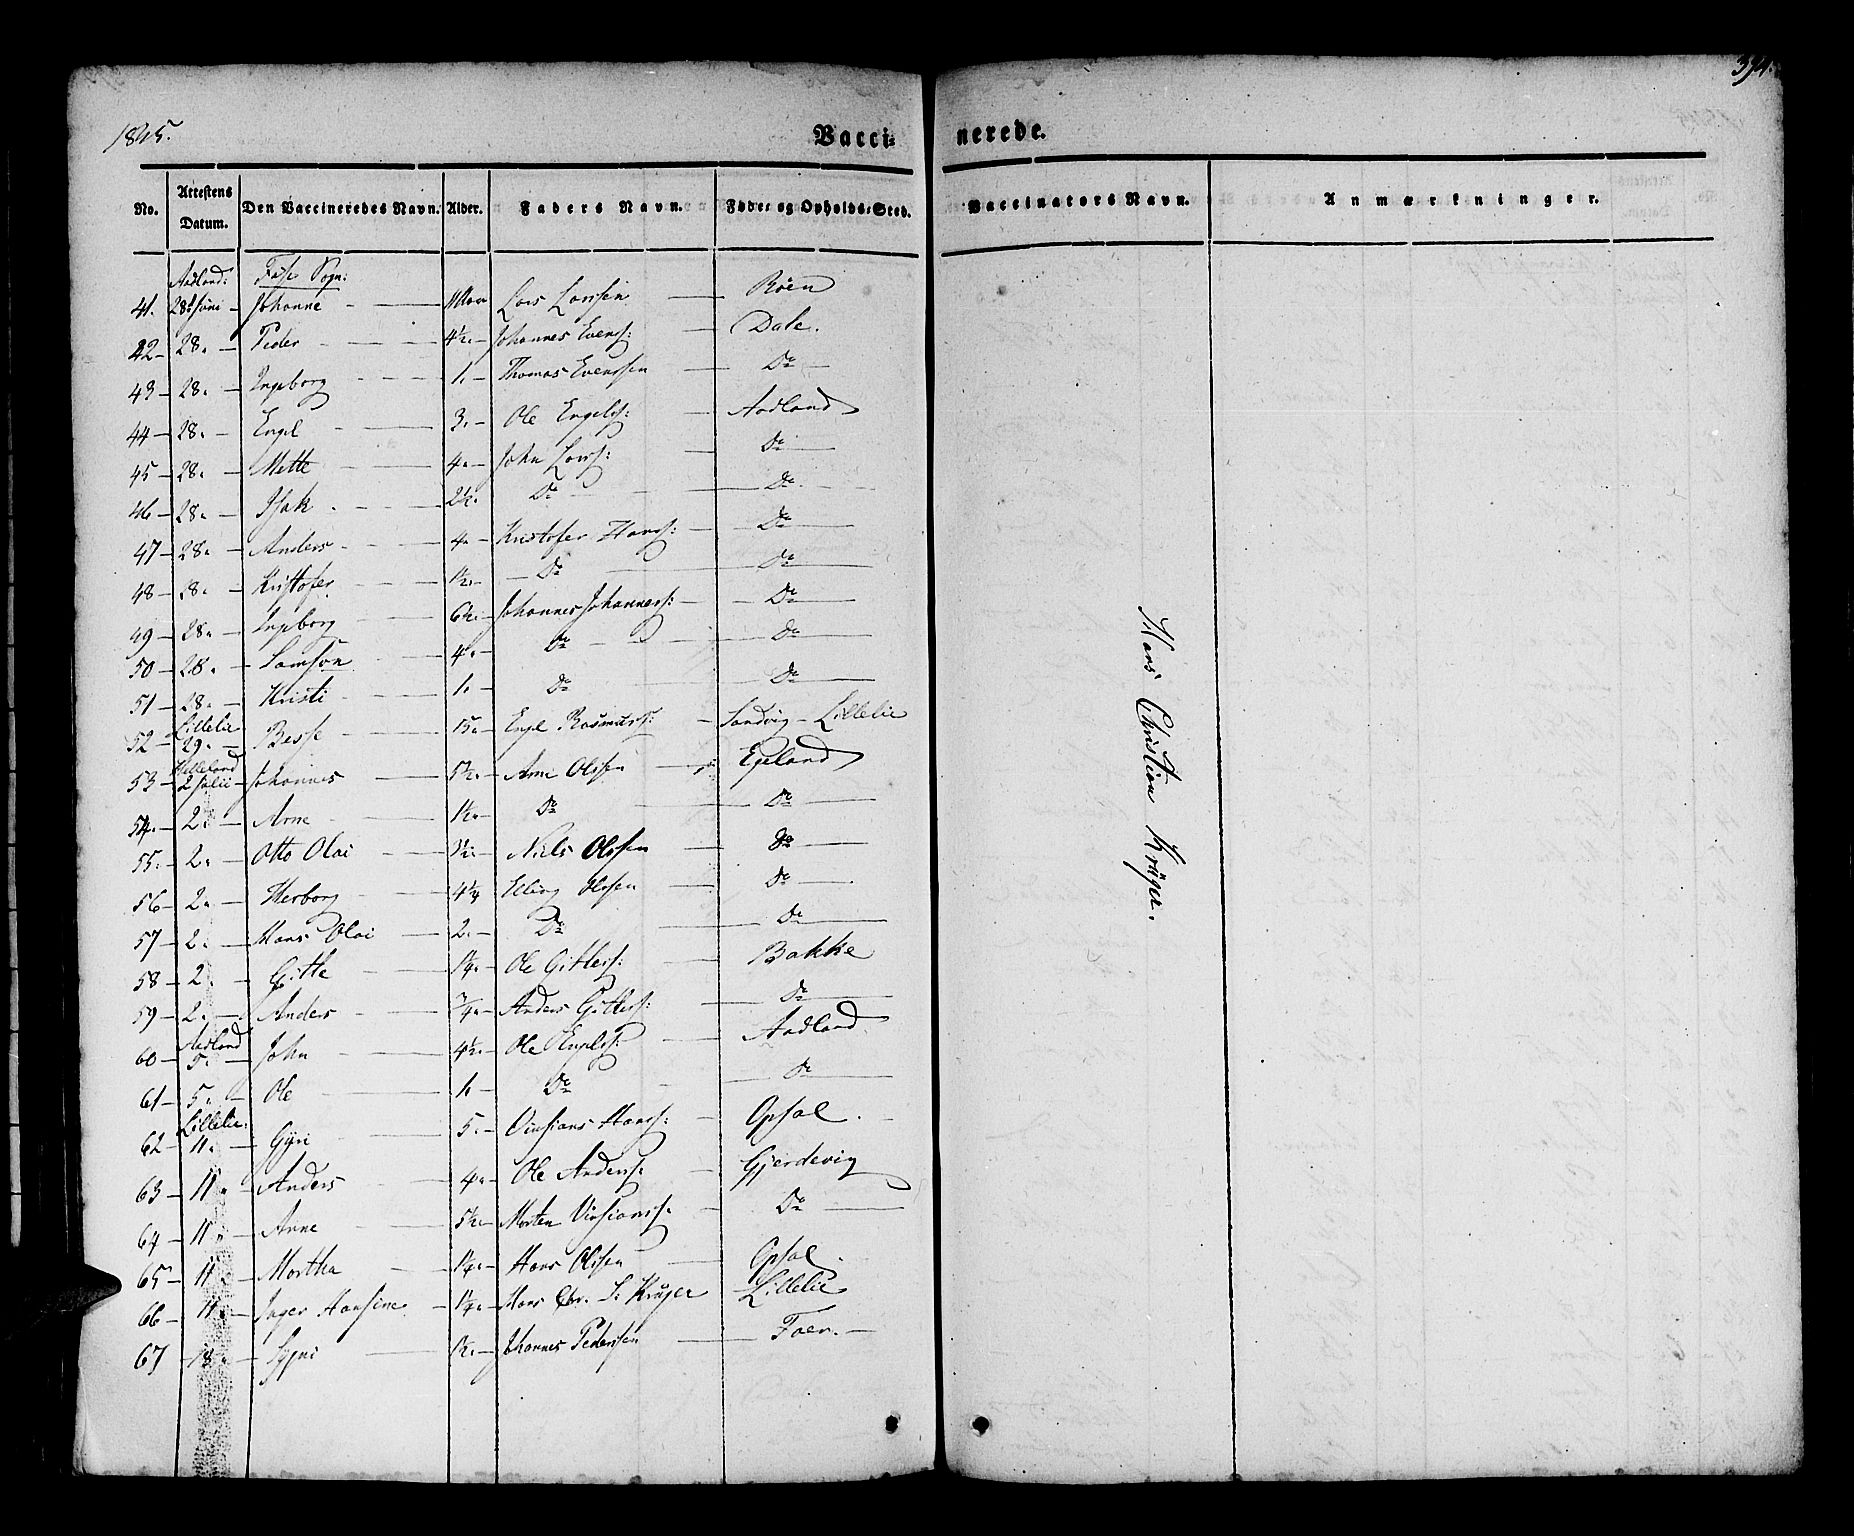 1845.
394.
Vaccinerede.
No. Attestens Datum. Den Vaccineredes Navn. Alder. Faders Navn. Føde- og Opholds-Sted. Vaccinators Navn. Anmærkninger.
Aadland: Fuse Sogn:
41. 28de Juni Johanne Lars Larssen Røen
42 28. Peder 4½. Johannes Evenss: Dale.
43 28. Ingeborg 1. Thomas Evenssen Do
44 28. Engel 3. Ole Engelss: Aadland
45 28. Mette 4. John Larss: Do
46 28. Isak 2½. Do Do
47 28. Anders 4. Kristofer Hanss: Do
48 28. Kristofer 1½. Do Do
49 28. Ingeborg 6½. Johannes Johanness: Do
50 28. Samson 4. Do Do
51 28. Kristi 1. Do Do
Lillelie
52 29. Besse 15. Engel Rasmuss: Sandvig - Lillelie
Helleland
53 2 Julii Johannes 5½. Arne Olssen Egeland
54. 2. Arne 1½. Do Do
55. 2. Otto Olai Niels Olssen Do
56 2. Herborg 4¼ Elling Olssen Do
57 2. Hans Olai 2. Do Do
58 2. Gitte 1¼. Ole Gitless: Bakke
59 2. Anders ¾. Anders Gitless: Do
Aadland
60 5. John 4½. Ole Engelss: Aadland
61 5. Ole 1. Do Do
Lillelie:
62 11. Gyri 5. Vinsians Hanss: Opsal.
63 11. Anders 4. Ole Anderss: Gjerdevig
64 11. Anne 5½. Morten Vinsianss: Do
65 11. Martha 1¼. Hans Olssen Opsal.
66 11. Inger Hansine 1¼. Hans Chr. S. Krüger Lillelie
67 18. Sygni ½. Johannes Pederssen Faer.
Hans Christian Krüger.